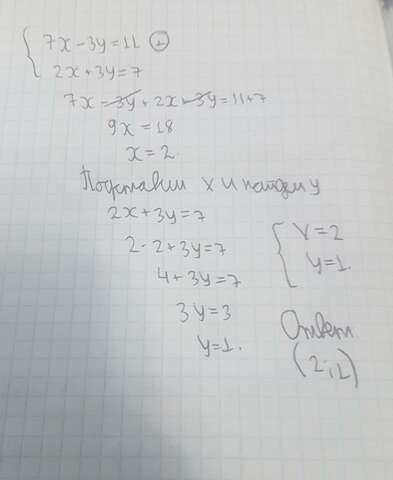 7x - 3y = 11 +
2x + 3y = 7
7x - 3y + 2x + 3y = 11 + 7
9x = 18
x = 2
Подставим x и найдем y
2x + 3y = 7
2 · 2 + 3y = 7
4 + 3y = 7
3y = 3
y = 1.
x = 2
y = 1.
Ответ
(2; 1)